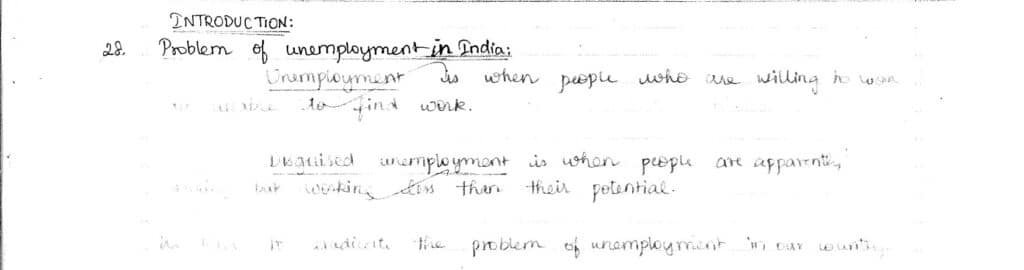 INTRODUCTION:
28. Problem of unemployment in India:
Unemployment is when people who are willing to work
unable to find work.
Disguised unemployment is when people are apparently
but working less than their potential.
eradicate the problem of unemployment in our country